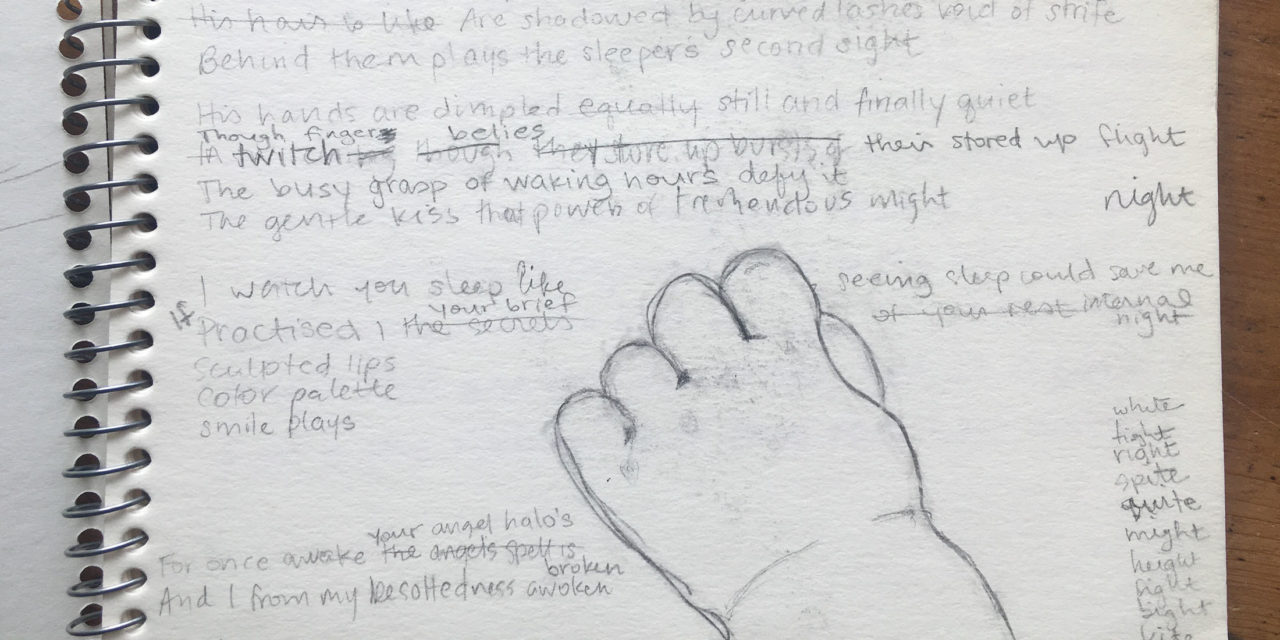 His hair is like Are shadowed by curved lashes void of strife
Behind them plays the sleeper's second sight
His hands are dimpled equally still and finally quiet
Though fingers belies
twitch though they store up bursts of their stored up flight
The busy grasp of waking hours defy it
The gentle kiss that power of tremendous might night
I watch you sleep like seeing sleep could save me
your brief of your rest internal
If Practised I the secrets night
sculpted lips
color palette
smile plays
white
tight
right
spite
quite
might
height
fight
sight
your angel halo's
For once awake the angels spell is
broken
And I from my besottedness awoken